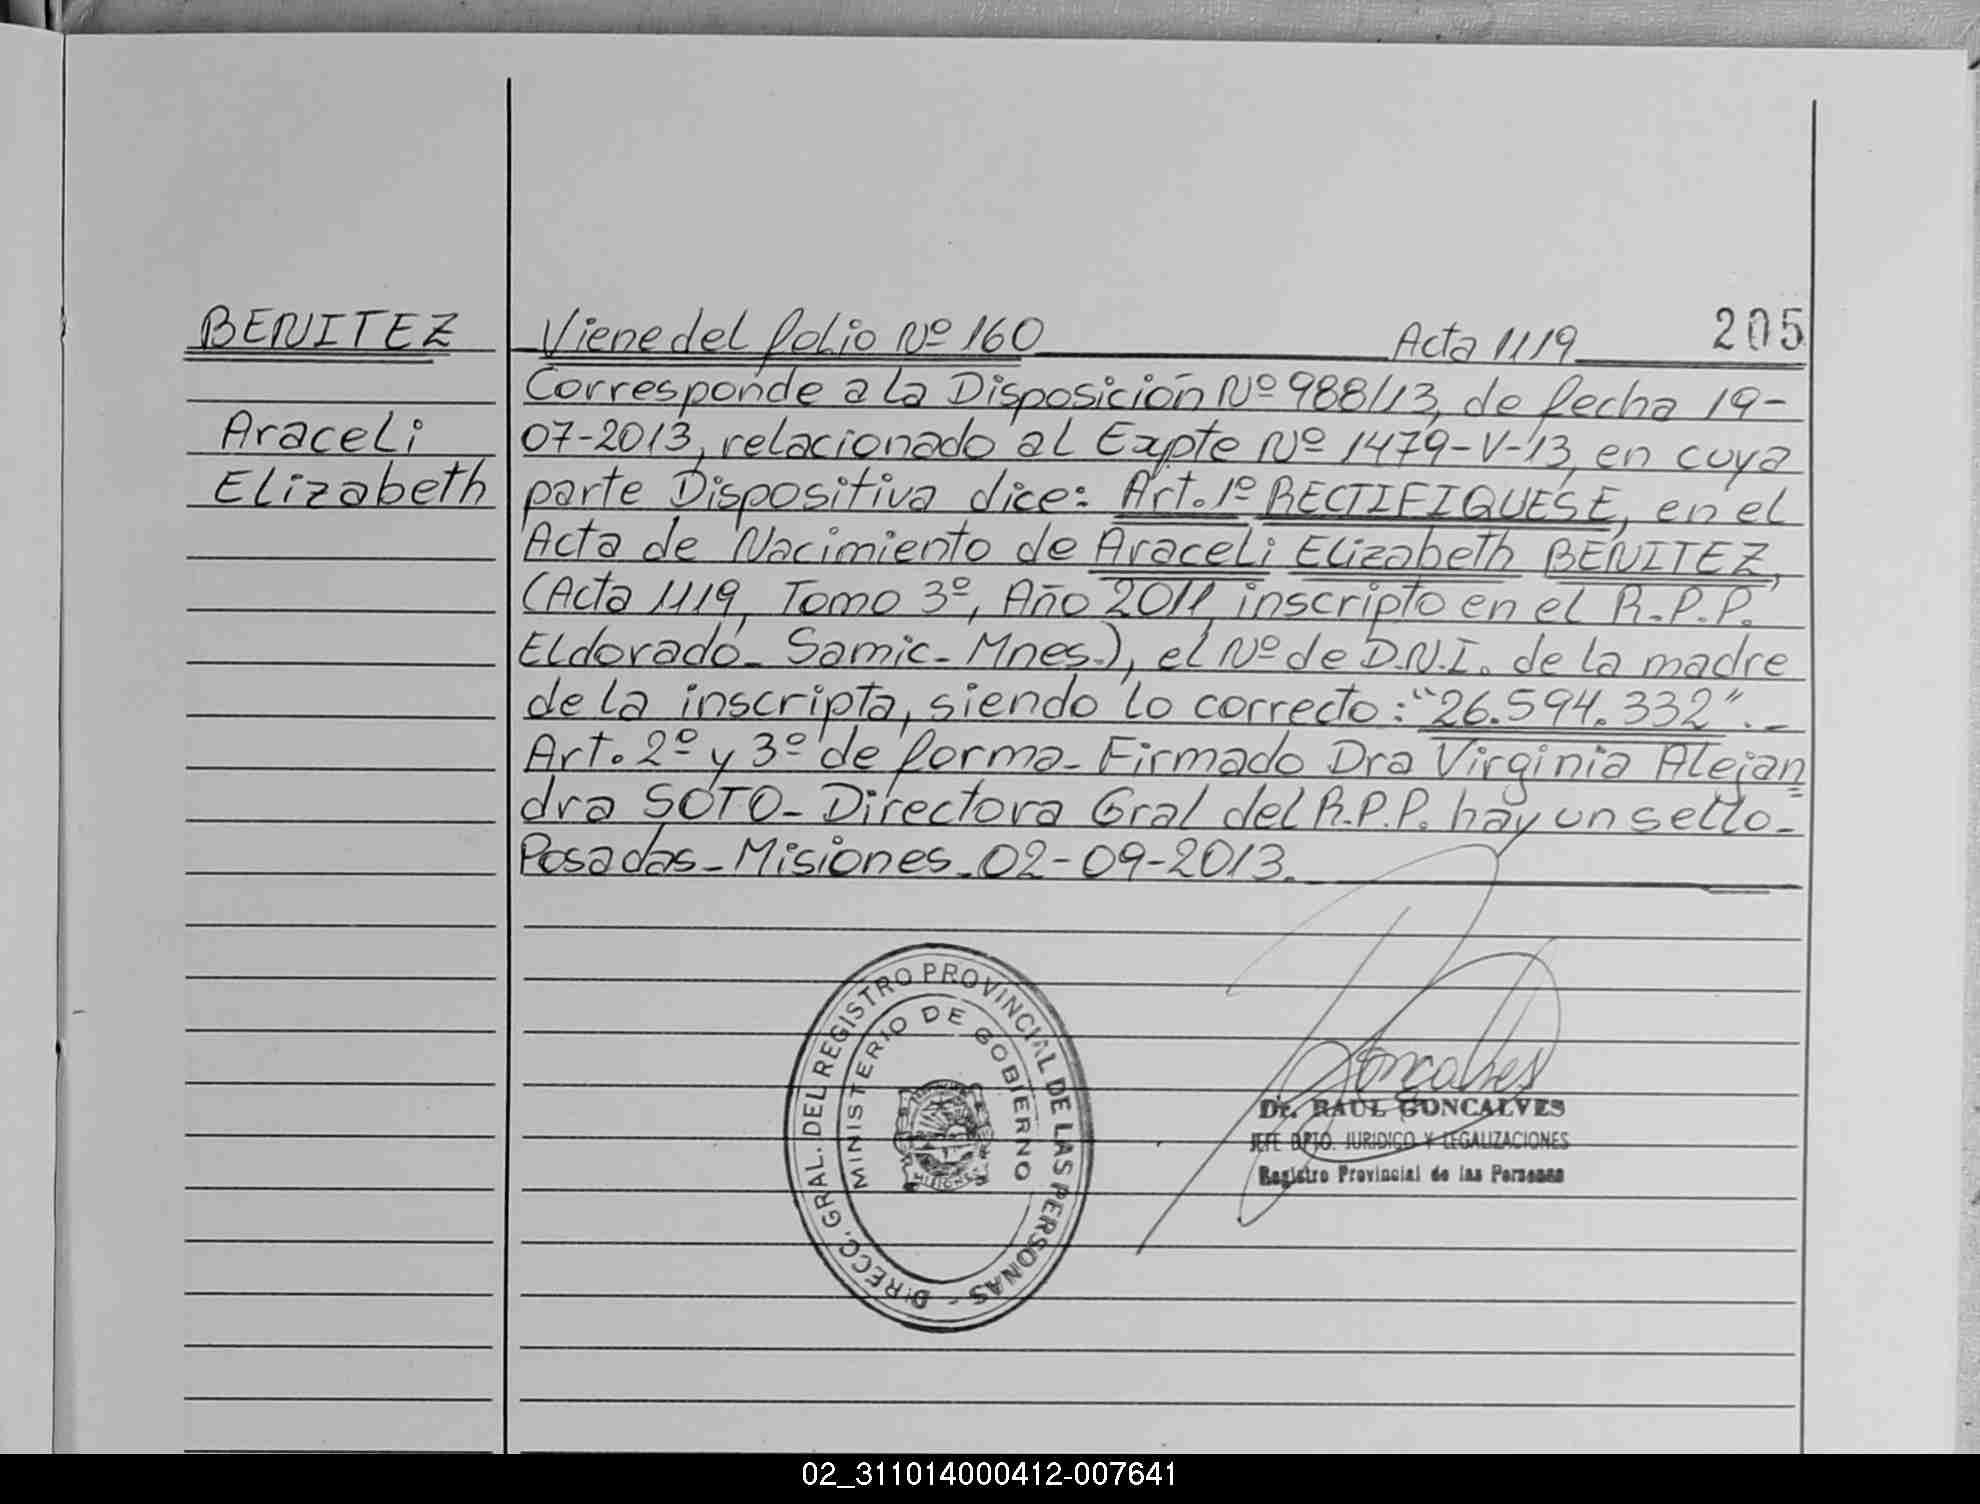 BENITEZ
Araceli
Elizabeth
Viene del folio Nº 160 Acta 1119 205
Corresponde a la Disposición Nº 988/13, de fecha 19-
07-2013, relacionado al Expte Nº 1479-V-13, en cuya
parte Dispositiva dice: Art. 1º RECTIFIQUESE, en el
Acta de Nacimiento de Araceli Elizabeth BENITEZ,
(Acta 1119, Tomo 3º, Año 2011, inscripto en el R.P.P.
Eldorado- Samic- Mnes.), el Nº de D.N.I. de la madre
de la inscripta, siendo lo correcto: "26.594.332".-
Art. 2º y 3º de forma- Firmado Dra Virginia Alejan
dra SOTO- Directora Gral del R.P.P. hay un sello-
Posadas-Misiones. 02-09-2013.
DIRECC. GRAL. DEL REGISTRO PROVINCIAL DE LAS PERSONAS -
MINISTERIO DE GOBIERNO
MISIONES
Goncalves
Dr. RAUL GONCALVES
JEFE DPTO. JURIDICO Y LEGALIZACIONES
Registro Provincial de las Personas
02_311014000412-007641